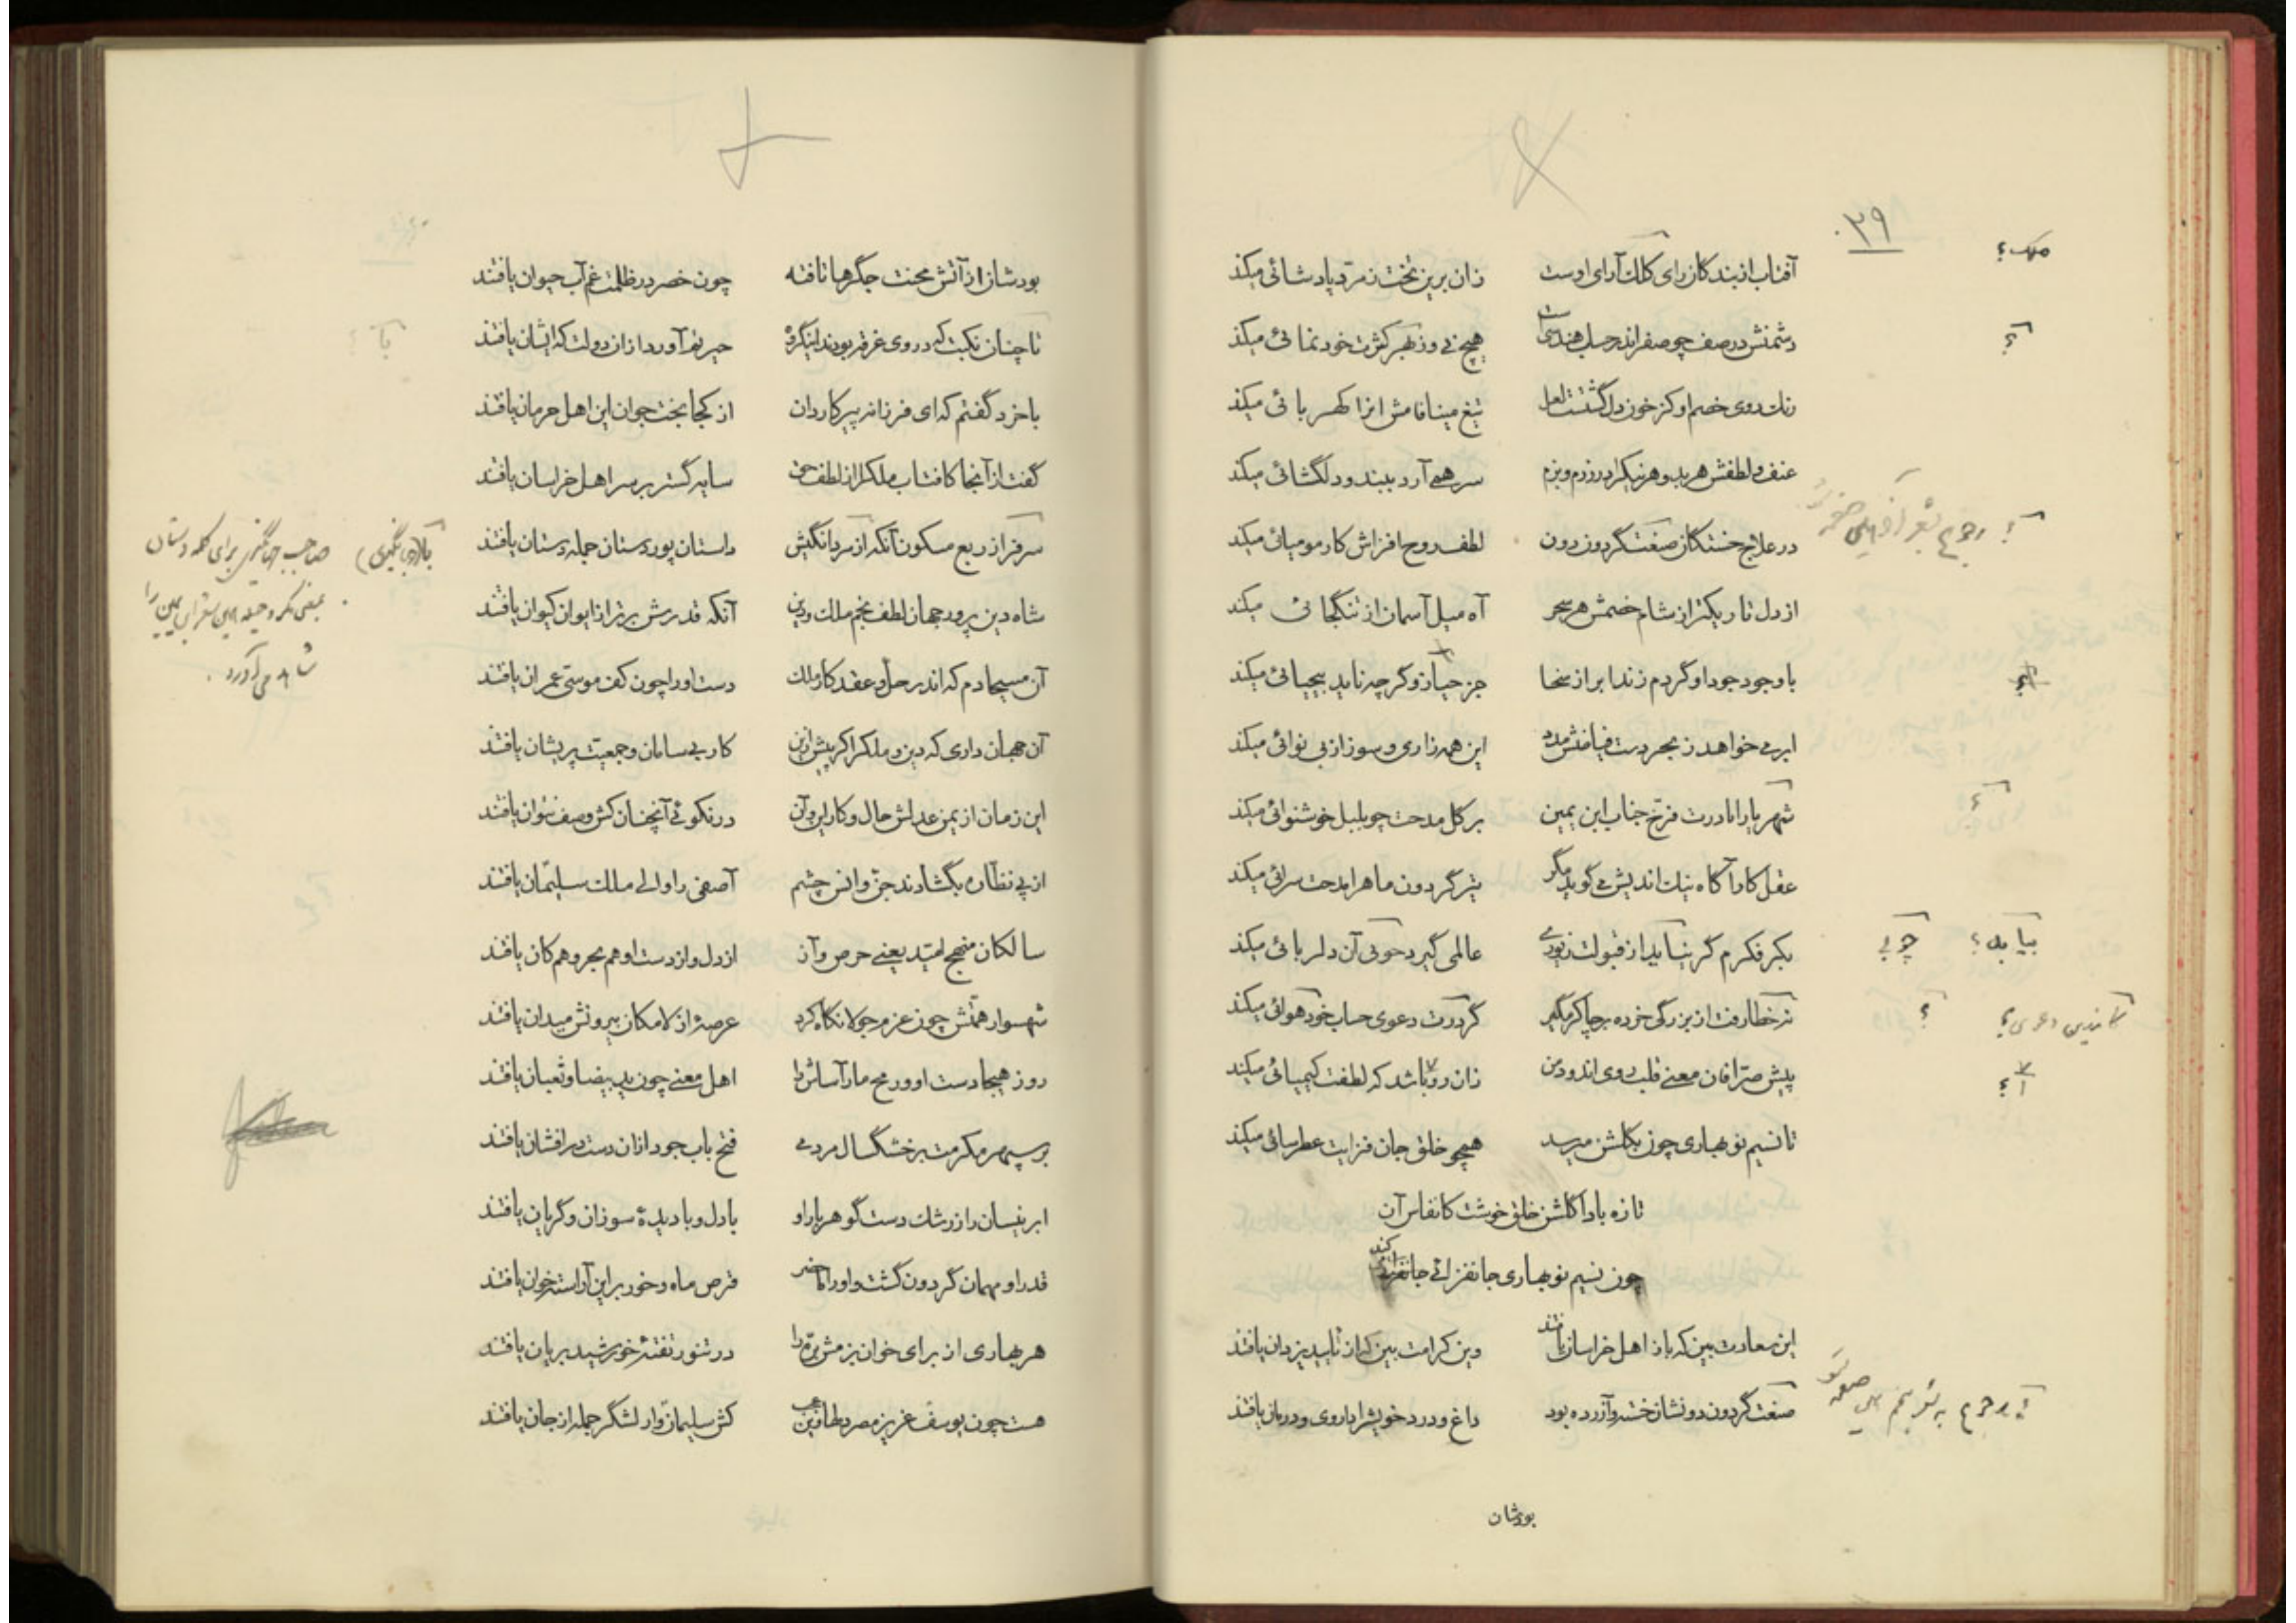 ۳۹
ملک؟
آفتاب از بندکان رای کلک آرای اوست زان برین تخت زمرد پادشائی میکند
دشمنش در صف چو صفر اندر حساب هندسی است هیچ نی وز بهر کثرت خود نمائی میکند
؟
رنک روی خصم او کز خون دل گشتست لعل تیغ مینا فامش انرا کهربائی میکند
عنف و لطفش هر بد و هر نیک را در رزم و بزم سرهمی آرد ببند و دلگشائی میکند
در علاج خستکان صنعت گردون دون لطف روح افزاش کار مومیائی میکند
؟ رجوع بشعر آخر این صفحه شود
از دل تاریکتر از شام خصمش هر سحر آه میل آسمان از تنگجائی میکند
با وجود جود او گر دم زند ابر از سخا جز حیا زو گر چه ناید بیحیائی میکند
ابر می خواهد ز بحر دست فیاضش مدد این همه زاری و سوز از بی نوائی میکند
شهریارا مادرت فرخ جناب ابن یمین بر کل مدحت چو بلبل خوشنوائی میکند
؟
عقل کار آکاه نیک اندیش می گوید مگر تیر گردون ماهرا مدحت سرائی میکند
بکر فکرم گر بیابد از قبولت زیوری عالمی گیرد چو نی آن دلربائی میکند
بیابد؟ چو بی
نه خطا رفت از بزرگی خرده بر چاکر مگیر گر درت دعوی حساب خود هوائی میکند
کاندین دعوی؟ ؟
پیش صرافان معنی قلب روی اندود من زان روا باشد که لطفت کیمیائی میکند
؟
تا نسیم نو بهاری چون بکلشن میرسد همچو خلق جان فزایت عطرسائی میکند
تازه بادا کلشن خلق خوشت کانفاس آن
چون نسیم نو بهاری جانفزائی جانفزائی کند
این سعادت بین که باز اهل خراسان یافتند وین کرامت بین که از تایید یزدان یافتند
صنعت گردون دون شان خسته و آزرده بود داغ و درد خویش را داروی و درمان یافتند
؟ رجوع به شعر پنجم این صفحه شود
بودشان
بودشان از آتش محنت جگرها تافته چون خضر در ظلمت غم آب حیوان یافتند
تا چنان نکبت که در وی غرقه بودند اینگروه حیرتم آورد از ان دولت که ایشان یافتند
با خرد گفتم که ای فرزانه پیر کاردان از کجا بخت جوان این اهل حرمان یافتند
گفت از آنجا کافتاب ملک را از لطف حق سایه گستر بر سر اهل خراسان یافتند
سرفراز ربع مسکون آنکه از سردانگیش داستان پور دستان جمله دستان یافتند
بالا (جهانگیری) صاحب جهانگیری برای کلمه دستان
بمعنی مکر و حیله این شعر ابن یمین را
شاهد می آورد.
شاه دین پرور جهان لطف نجم ملک و دین آنکه قدرش برتر از ایوان کیوان یافتند
آن مسیحا دم که اندر حل و عقد کار ملک دست او را چون کف موسی عمران یافتند
آن جهان داری که دین و ملک را گر پیش ازین کار بی سامان و جمعیت پریشان یافتند
این زمان از یمن عدلش حال و کار این و آن در نکوئی آنچنان کش وصف نتوان یافتند
از پی نظاره بگشادند جن و انس چشم آصفی را والی ملک سلیمان یافتند
سالکان منهج امید یعنی حرص و آز از دل و از دست او هم بحر و هم کان یافتند
شهسوار همتش چون عزم جولانکاه کرد عرصهٔ از لامکان بیرونش میدان یافتند
روز هیجا دست او و رمح مار آساش را اهل معنی چون ید بیضا و ثعبان یافتند
بر سپهر مکرمت بر خشگسال مردمی فتح باب جود از ان دست درافشان یافتند
ابر نیسان را ز رشک دست گوهر بار او با دل و با دیدهٔ سوزان و گریان یافتند
قدر او مهمان گردون گشت و او را ماحضر قرص ماه و خور بر این آراسته خوان یافتند
هر بهاری از برای خوان بزمش بره را در تنور تفتهٔ خورشید بریان یافتند
هست چون یوسف عزیز مصر دلها زین عجب کش سلیمان وار لشگر جمله از جان یافتند